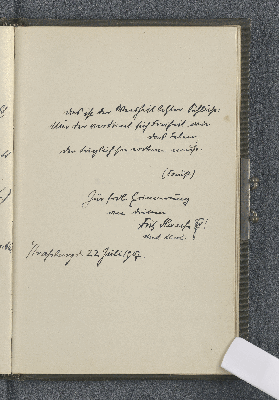 das ist der Weisheit letzter Schluss:
Nur der verdient sich Freiheit wie
das Leben
der täglich sie erobern muss.
(Faust)
Zur frdl. Erinnerung
an deinen
Fritz
Strassburg d. 22 Juli